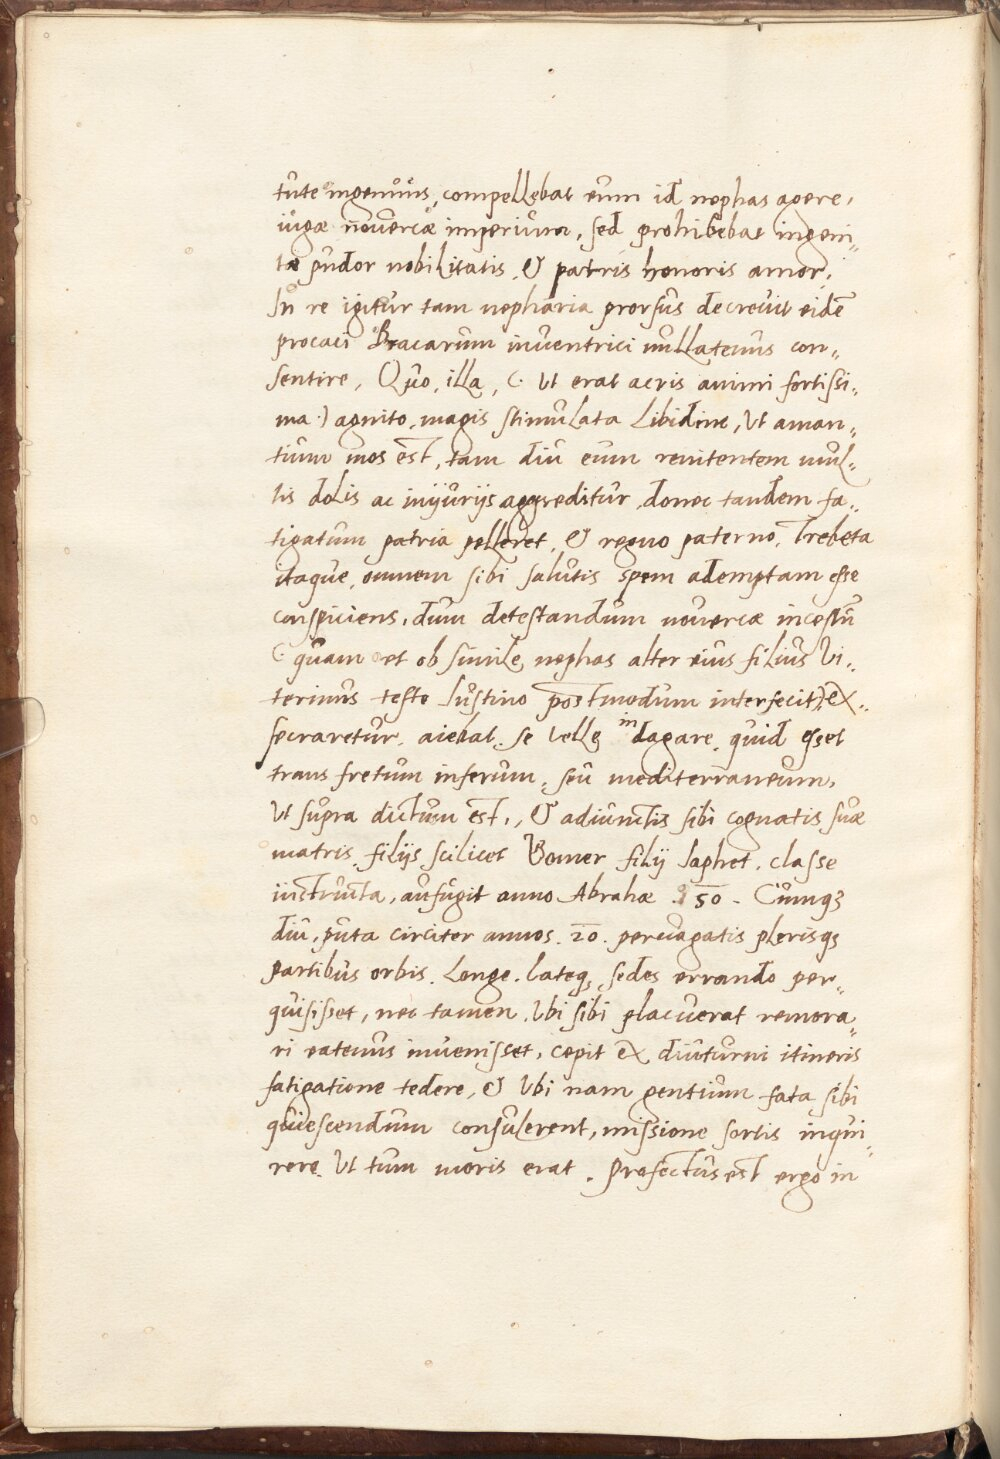 tute ingenuus, compellebat eum id nephas agere,
iugae novercae imperium, sed prohibebat ingeni„
tae pudor nobilitatis, & patris honoris amor,
In re igitur tam nepharia prorsus decrevit eidē
procaci Bracarum inventrici nullatenus con„
sentire, Quo, illa, (: Ut erat acris animi fortissi„
ma :) agnito, magis stimulata libidine, Ut aman„
tium mos est, tam diu eum renitentem mul„
tis dolis ac iniuriis aggreditur, donec tandem fa„
tigatum patria pelleret, & regno paterno, Trebeta
itaque, omnem sibi salutis spem ademptam esse
conspiciens, dum detestandum novercae incestū
(: quam et ob simile nephas alter eius filius U„
terinus teste Iustino postmodum interfecit) ex„
secraretur, aiebat, se velle indagare, quid esset
trans fretum inferum, seu mediterraneum,
Ut supra dictum est,, & adiunctis sibi cognatis suae
matris, filijs scilicet Gomer filij Iaphet, classe
instructa, aufugit anno Abrahae 50. Cumq3
diu, puta circiter annos. 20. pervagatis plerisq3
partibus orbis, longe, lateq3, sedes errando per„
quisisset, nec tamen, Ubi sibi placuerat remora„
ri eatenus invenisset, cepit ex diuturni itineris
fatigatione tedere, & Ubi nam gentium fata sibi
quiescendum consulerent, missione sortis inqui„
rere, Ut tum moris erat. Profectus est ergo in